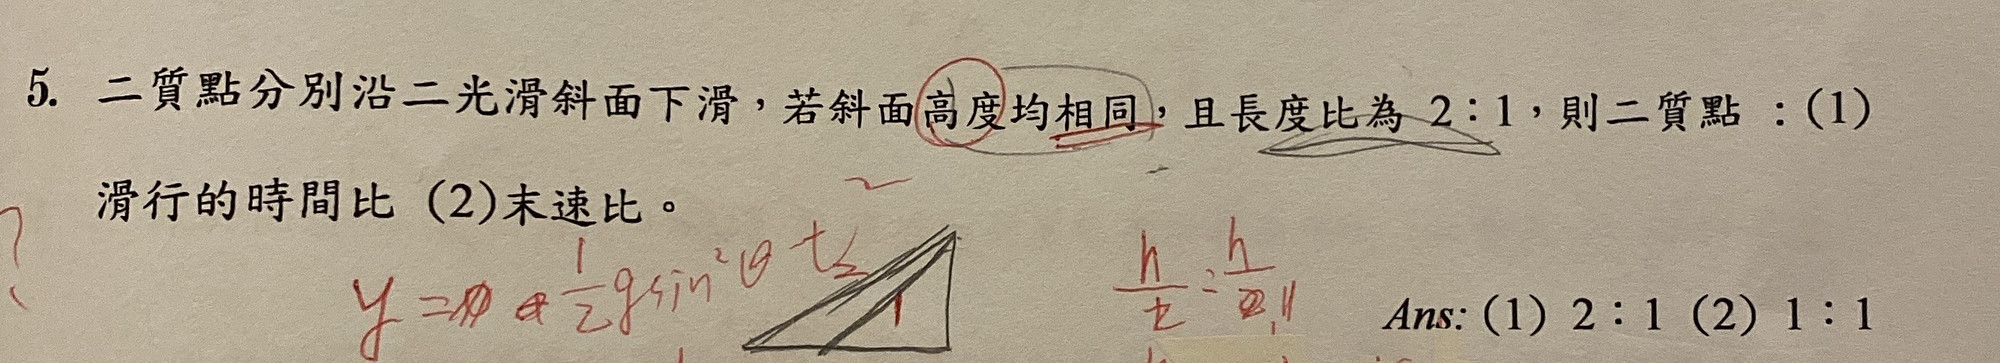 5. 二質點分別沿二光滑斜面下滑，若斜面高度均相同，且長度比為 2：1，則二質點：(1)
滑行的時間比 (2)末速比。
y = 1/2 g sin²θ t²
h/2 = h/
1
Ans: (1) 2：1 (2) 1：1